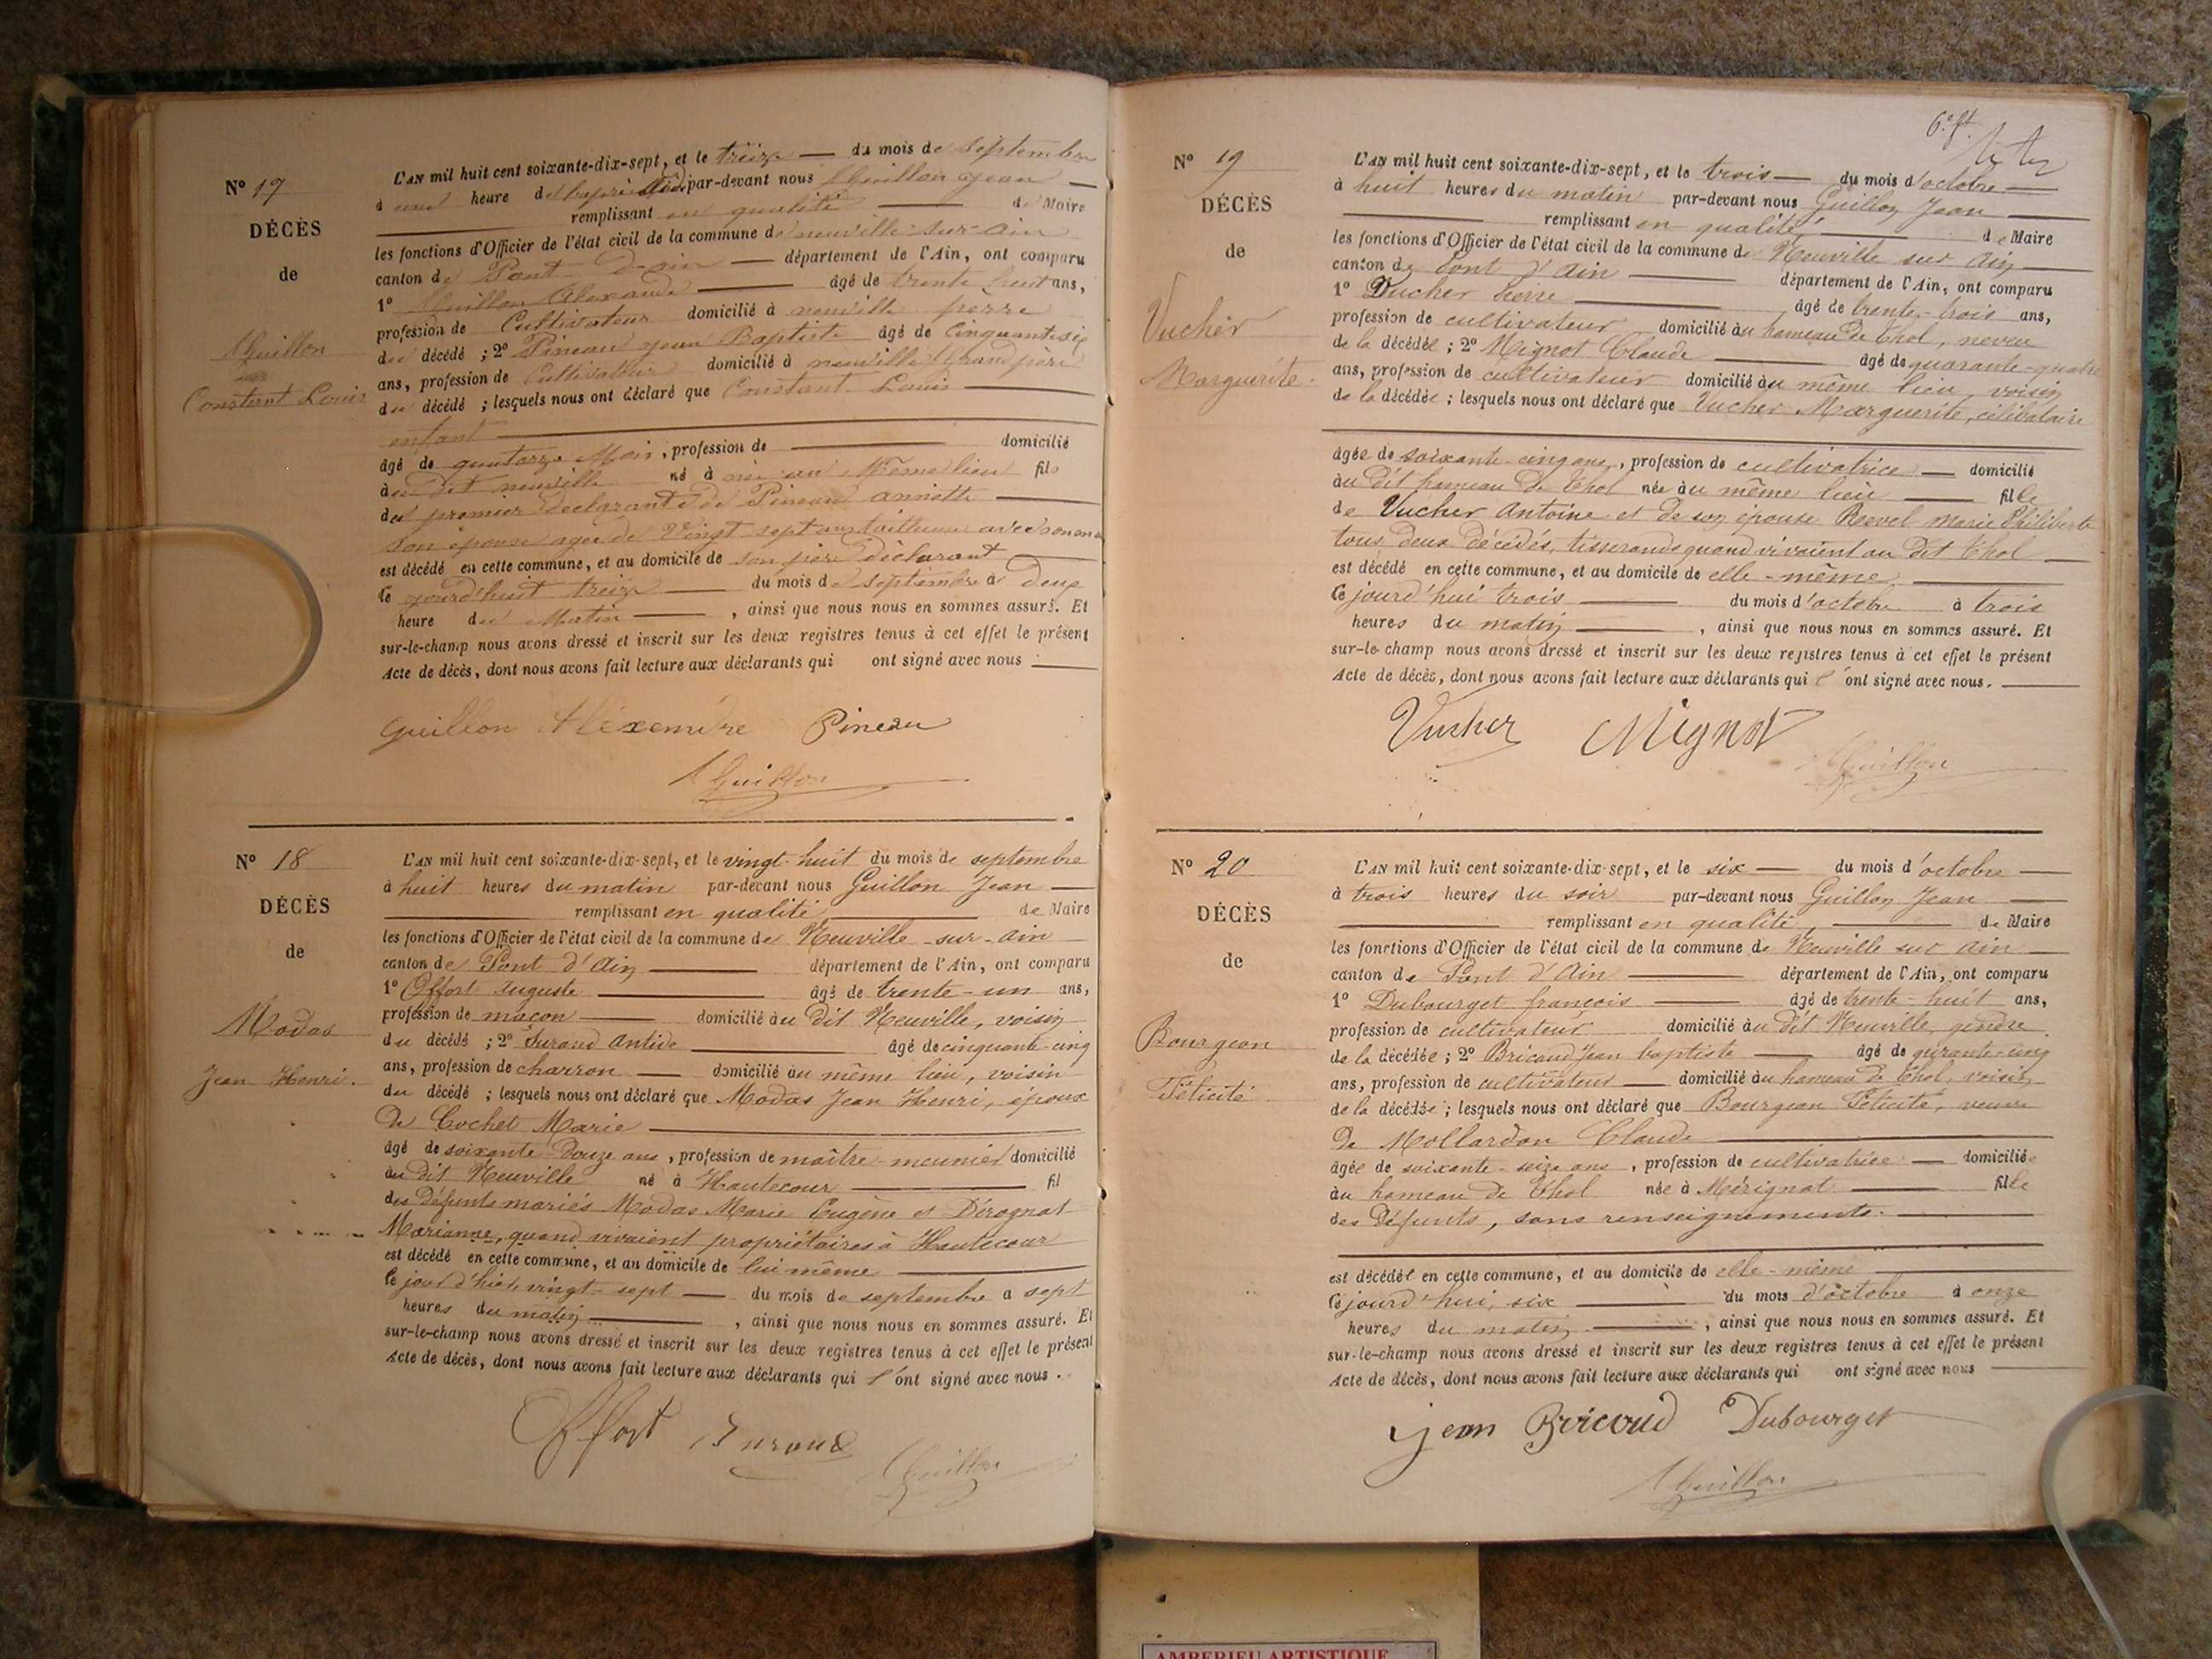 N° 17
DÉCÈS
de
Guillon
Constant Louis
L'AN mil huit cent soixante-dix-sept, et le treize — du mois de Septembre
à une heure de par-devant nous Guillon Jean —
remplissant en qualité — de Maire
les fonctions d'Officier de l'état civil de la commune de neuville-sur-ain
canton de Pont-d'ain — département de l'Ain, ont comparu
1° Guillon Alexandre — âgé de trente huit ans,
profession de Cultivateur domicilié à neuville perre
du décédé ; 2° Pineau jean Baptiste âgé de Cinquante six
ans, profession de Cultivateur domicilié à neuville Grand père
du décédé ; lesquels nous ont déclaré que Constant Louis —
enfant —
âgé de quatorze Mois, profession de — domicilié
au dit neuville né à au Même lieu fils
du premier déclarant & de Pineau annette —
son épouse agée de Vingt sept ans avec
est décédé en cette commune, et au domicile de son père déclarant
le jourd'huit treize — du mois de septembre à deux
heure du Matin —, ainsi que nous nous en sommes assuré. Et
sur-le-champ nous avons dressé et inscrit sur les deux registres tenus à cet effet le présent
Acte de décès, dont nous avons fait lecture aux déclarants qui ont signé avec nous —
Guillon Aléxemdre Pineau
Guillon
N° 18
DÉCÈS
de
Modas
Jean Henri.
L'AN mil huit cent soixante-dix-sept, et le vingt-huit du mois de septembre
à huit heures du matin par-devant nous Guillon Jean —
remplissant en qualité — de Maire
les fonctions d'Officier de l'état civil de la commune de Neuville-sur-Ain
canton de Pont d'Ain — département de l'Ain, ont comparu
1° Offort Auguste — âgé de trente-un ans,
profession de maçon — domicilié au dit Neuville, voisin
du décédé ; 2° Durand Antide — âgé de cinquante-cinq
ans, profession de charron — domicilié au même lieu, voisin
du décédé ; lesquels nous ont déclaré que Modas Jean Henri, époux
de Cochet Marie —
âgé de soixante-douze ans, profession de maître-meunier domicilié
au dit Neuville né à Hautecour — fil
des défunts mariés Modas Marie Eugène et Dérognat
Marianne, quand vivaient propriétaires à Hautecour
est décédé en cette commune, et au domicile de lui même —
le jour d'hier, vingt-sept — du mois de septembre a sept
heures du matin —, ainsi que nous nous en sommes assuré. Et
sur-le-champ nous avons dressé et inscrit sur les deux registres tenus à cet effet le présent
Acte de décès, dont nous avons fait lecture aux déclarants qui l'ont signé avec nous.
Offort Durand
Guillon
6e ft.
N° 19
DÉCÈS
de
Vucher
Marguerite.
L'AN mil huit cent soixante-dix-sept, et le trois — du mois d'octobre —
à huit heures du matin par-devant nous Guillon Jean —
remplissant en qualité — de Maire
les fonctions d'Officier de l'état civil de la commune de Neuville sur Ain —
canton de Pont d'Ain — département de l'Ain, ont comparu
1° Vucher Pierre — âgé de trente-trois ans,
profession de cultivateur domicilié au hameau de Thol, neveu
de la décédée ; 2° Mignot Claude — âgé de quarante-quatre
ans, profession de cultivateur domicilié au même lieu, voisin
de la décédée ; lesquels nous ont déclaré que Vucher Marguerite, célibataire
âgée de soixante-cinq ans, profession de cultivatrice — domicilié
au dit hameau de Thol née au même lieu — fille
de Vucher Antoine et de son épouse Revel Marie Philiberte
tous deux décédés, tisserands quand vivaient au dit Thol —
est décédé en cette commune, et au domicile de elle-même —
le jourd'hui trois — du mois d'octobre à trois
heures du matin —, ainsi que nous nous en sommes assuré. Et
sur-le-champ nous avons dressé et inscrit sur les deux registres tenus à cet effet le présent
Acte de décès, dont nous avons fait lecture aux déclarants qui l'ont signé avec nous. —
Vucher Mignot
Guillon
N° 20
DÉCÈS
de
Bourgeon
Félicité
L'AN mil huit cent soixante-dix-sept, et le six — du mois d'octobre —
à trois heures du soir par-devant nous Guillon Jean —
remplissant en qualité — de Maire
les fonctions d'Officier de l'état civil de la commune de Neuville sur Ain
canton de Pont d'Ain — département de l'Ain, ont comparu
1° Dubourget françois — âgé de trente-huit ans,
profession de cultivateur domicilié au dit Neuville, gendre
de la décédée ; 2° Bricaud Jean baptiste — âgé de qurante-cinq
ans, profession de cultivateur — domicilié au hameau de Thol, voisin
de la décédée ; lesquels nous ont déclaré que Bourgeon Félicité, veuve
de Mollardon Claude —
âgée de soixante-seize ans, profession de cultivatrice — domiciliée
au hameau de Thol née à Mérignat — fille
des défunts, sans renseignements. —
est décédée en cette commune, et au domicile de elle-même —
le jourd'hui, six — du mois d'octobre à onze
heures du matin —, ainsi que nous nous en sommes assuré. Et
sur-le-champ nous avons dressé et inscrit sur les deux registres tenus à cet effet le présent
Acte de décès, dont nous avons fait lecture aux déclarants qui ont signé avec nous —
jean Bricoud Dubourget
Guillon
AMBERIEU ARTISTIQUE